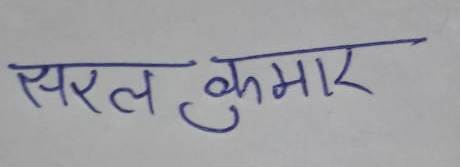 सरल कुमार